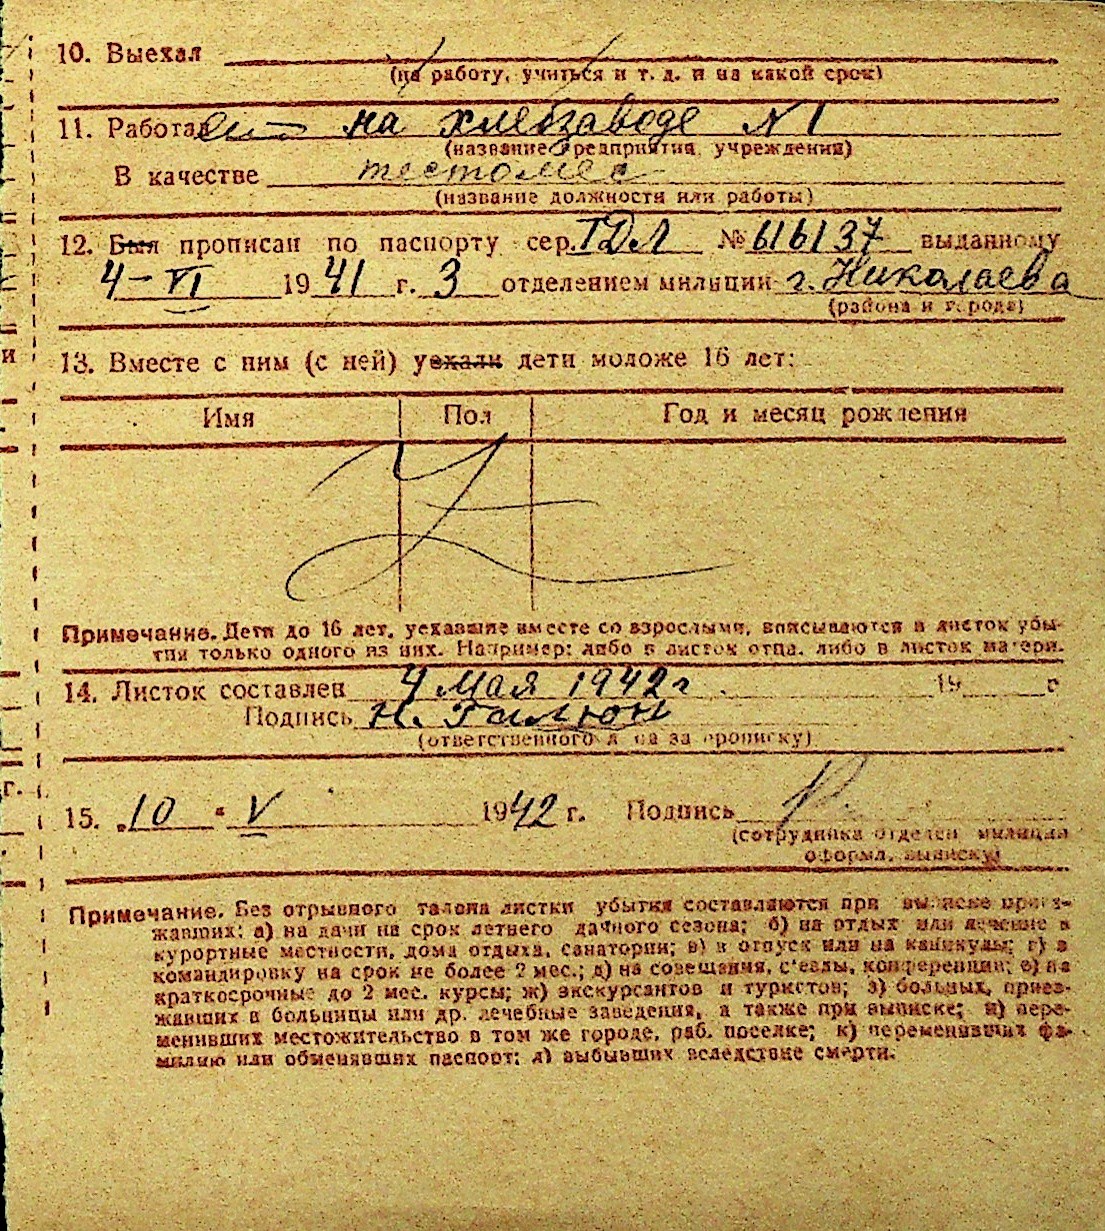 10. Выехал
(на работу, учиться и т. д. и на какой срок)
11. Работает на хлебзаводе N 1
(название предприятия, учреждения)
В качестве тестомес
(название должности или работы)
12. Был прописан по паспорту сер. ТДЛ № 616137 выданному
4-VI 1941 г. 3 отделением милиции г. Николаева
(района и города)
13. Вместе с ним (с ней) уехали дети моложе 16 лет:
Имя Пол Год и месяц рождения
Примечание. Дети до 16 лет, уехавшие вместе со взрослыми, вписываются в листок убы-
тия только одного из них. Например: либо в листок отца, либо в листок матери.
14. Листок составлен 4 мая 1942 г. 19 г
Подпись Н.
(ответственного лица за прописку)
15. „10 “ V 1942 г. Подпись
(сотрудника отделен. милиции
оформл. выписку)
Примечание. Без отрывного талона листки убытия составляются при выписке приез-
жавших: а) на дачи на срок летнего дачного сезона; б) на отдых или лечение в
курортные местности, дома отдыха, санатории; в) в отпуск или на каникулы; г) в
командировку на срок не более 2 мес.; д) на совещания, с'езды, конференции; е) на
краткосрочные до 2 мес. курсы; ж) экскурсантов и туристов; з) больных, приез-
жавших в больницы или др. лечебные заведения, а также при выписке; и) пере-
менивших местожительство в том же городе, раб. поселке; к) переменивших фа-
милию или обменявших паспорт; л) выбывших вследствие смерти.